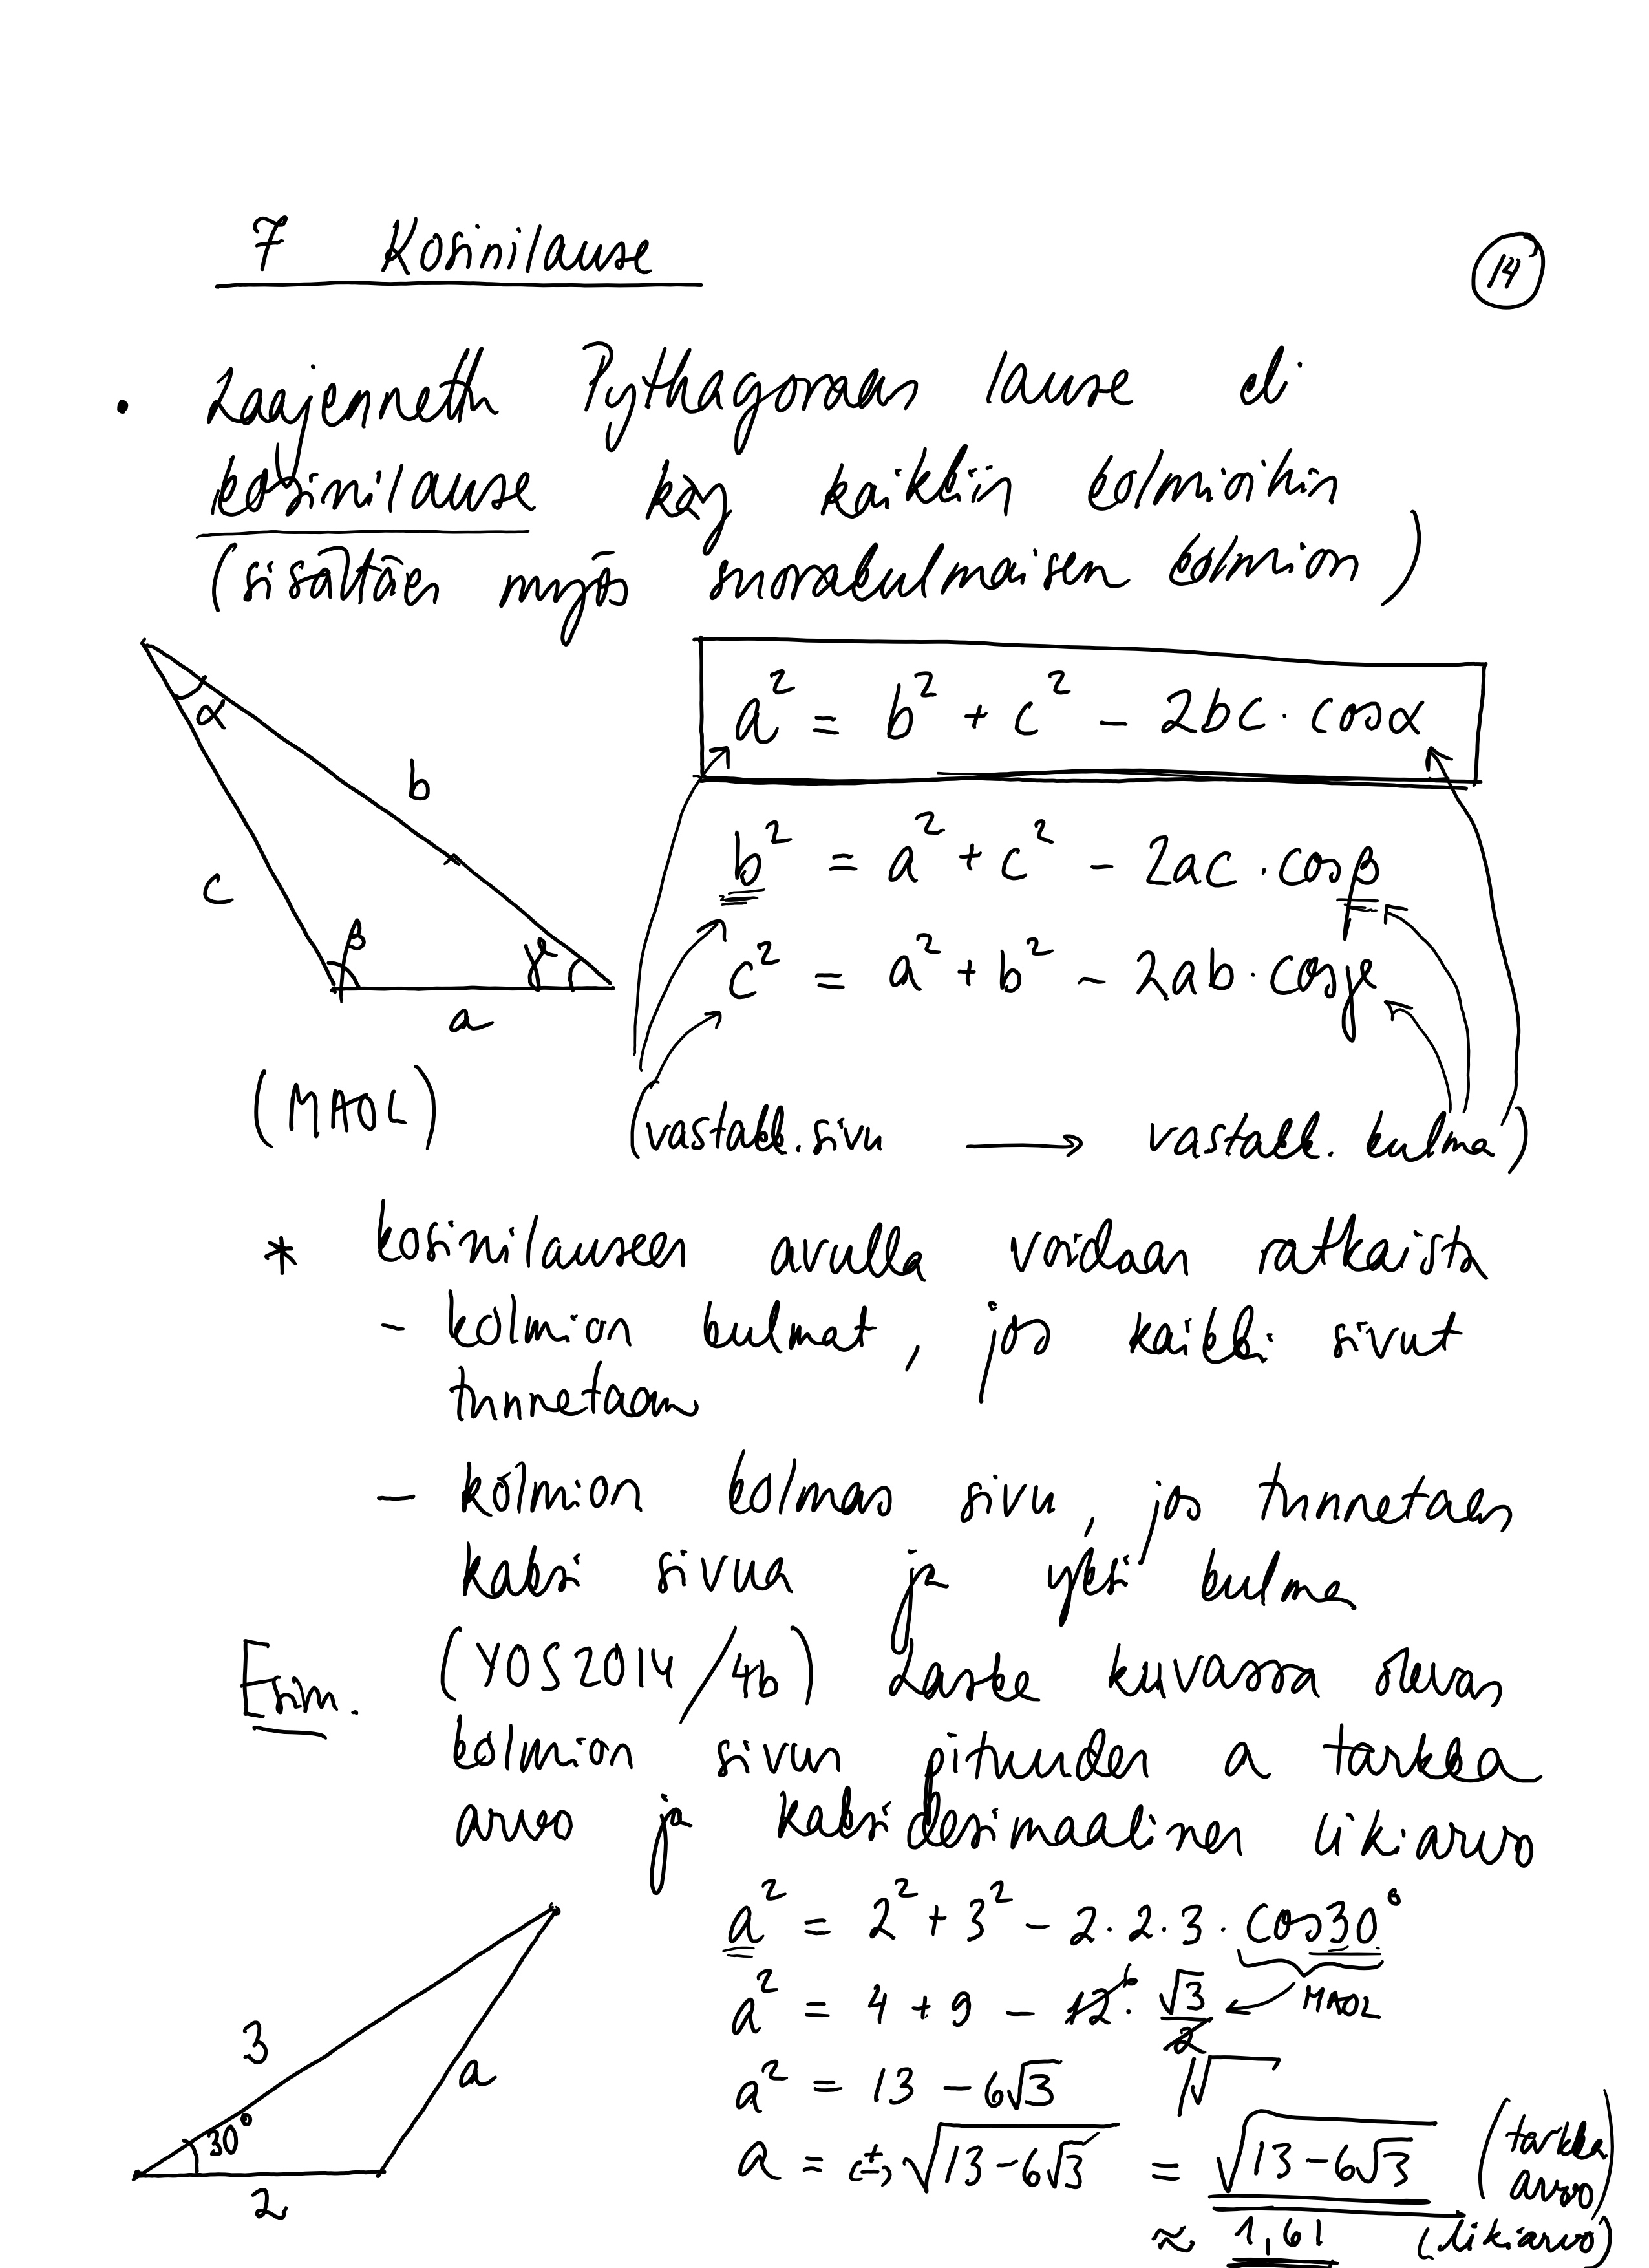 7 Kosinilause
14
• Laajennettu Pythagoraan lause eli
kosinilause käy kaikkiin kolmioihin
(sisältäen myös suorakulmaisen kolmion)
α
b
c
β
γ
a
a² = b² + c² − 2bc · cosα
b² = a² + c² − 2ac · cosβ
c² = a² + b² − 2ab · cosγ
(MAOL)
(vastakk. sivu ⟶ vastakk. kulma)
* kosinilauseen avulla voidaan ratkaista
– kolmion kulmat, jos kaikki sivut
tunnetaan
– kolmion kolmas sivu, jos tunnetaan
kaksi sivua ja yksi kulma
Esim. (YOS2014/4b) Laske kuvassa olevan
kolmion sivun pituuden a tarkka
arvo ja kaksidesimaalinen likiarvo
3
a
30°
2
a² = 2² + 3² − 2·2·3· cos30°
a² = 4 + 9 − 12⁶ · √3/2 ← MAOL
a² = 13 − 6√3 |√
a = (±) √(13−6√3) = √(13−6√3) (tarkka arvo)
≈ 1,61 (likiarvo)